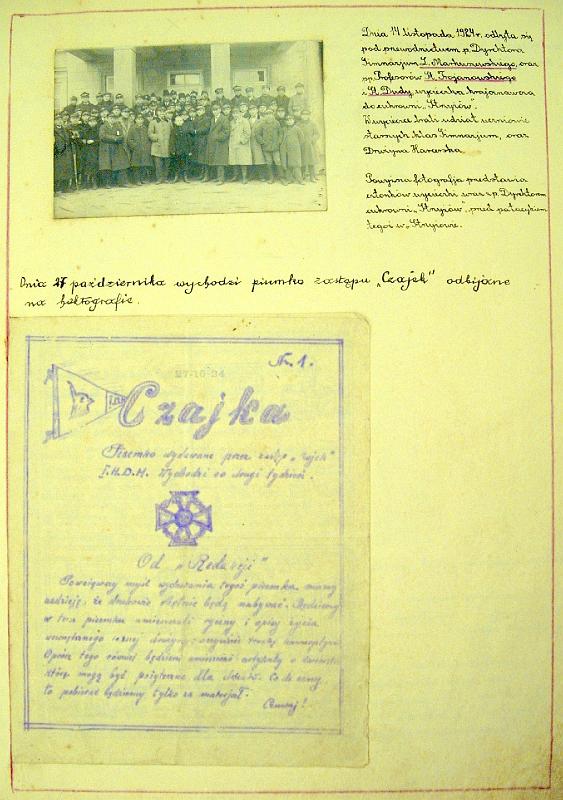 Dnia 14 listopada 1924 r. odbyła się
pod przewodnictwem p. Dyrektora
Gimnazjum Z. Markuszewskiego, oraz
pp. Profesorów St. Trojanowskiego
i St. Dudy, wycieczka krajoznawcza
do cukrowni „Strzyżów”.
W wycieczce brali udział uczniowie
starszych klas Gimnazjum, oraz
Drużyna Harcerska.
Powyższa fotografja przedstawia
członków wycieczki wraz z p. Dyrektorem
cukrowni „Strzyżów”, przed pałacykiem
tegoż w Strzyżowie.
Dnia 27 października wychodzi pisemko zastępu „Czajek” odbijane
na hektografie.
Nr. 1.
27-10-24
Czajka
Pisemko wydawane przez zastęp „Czajek”
I.H.D.H. Wychodzi co drugi tydzień.
Od „Redakcji”
Powziąwszy myśl wydawania tegoż pisemka mamy
nadzieję, że druhowie chętnie będą nabywać. Będziemy
w tem pisemku umieszczali ryciny i opisy życia
wewnętrznego naszej drużyny,
Oprócz tego również będziemy umieszczać artykuły o
które mogą być pożyteczne dla Co do ceny
to pobierać będziemy tylko za materjał.
Czuwaj!